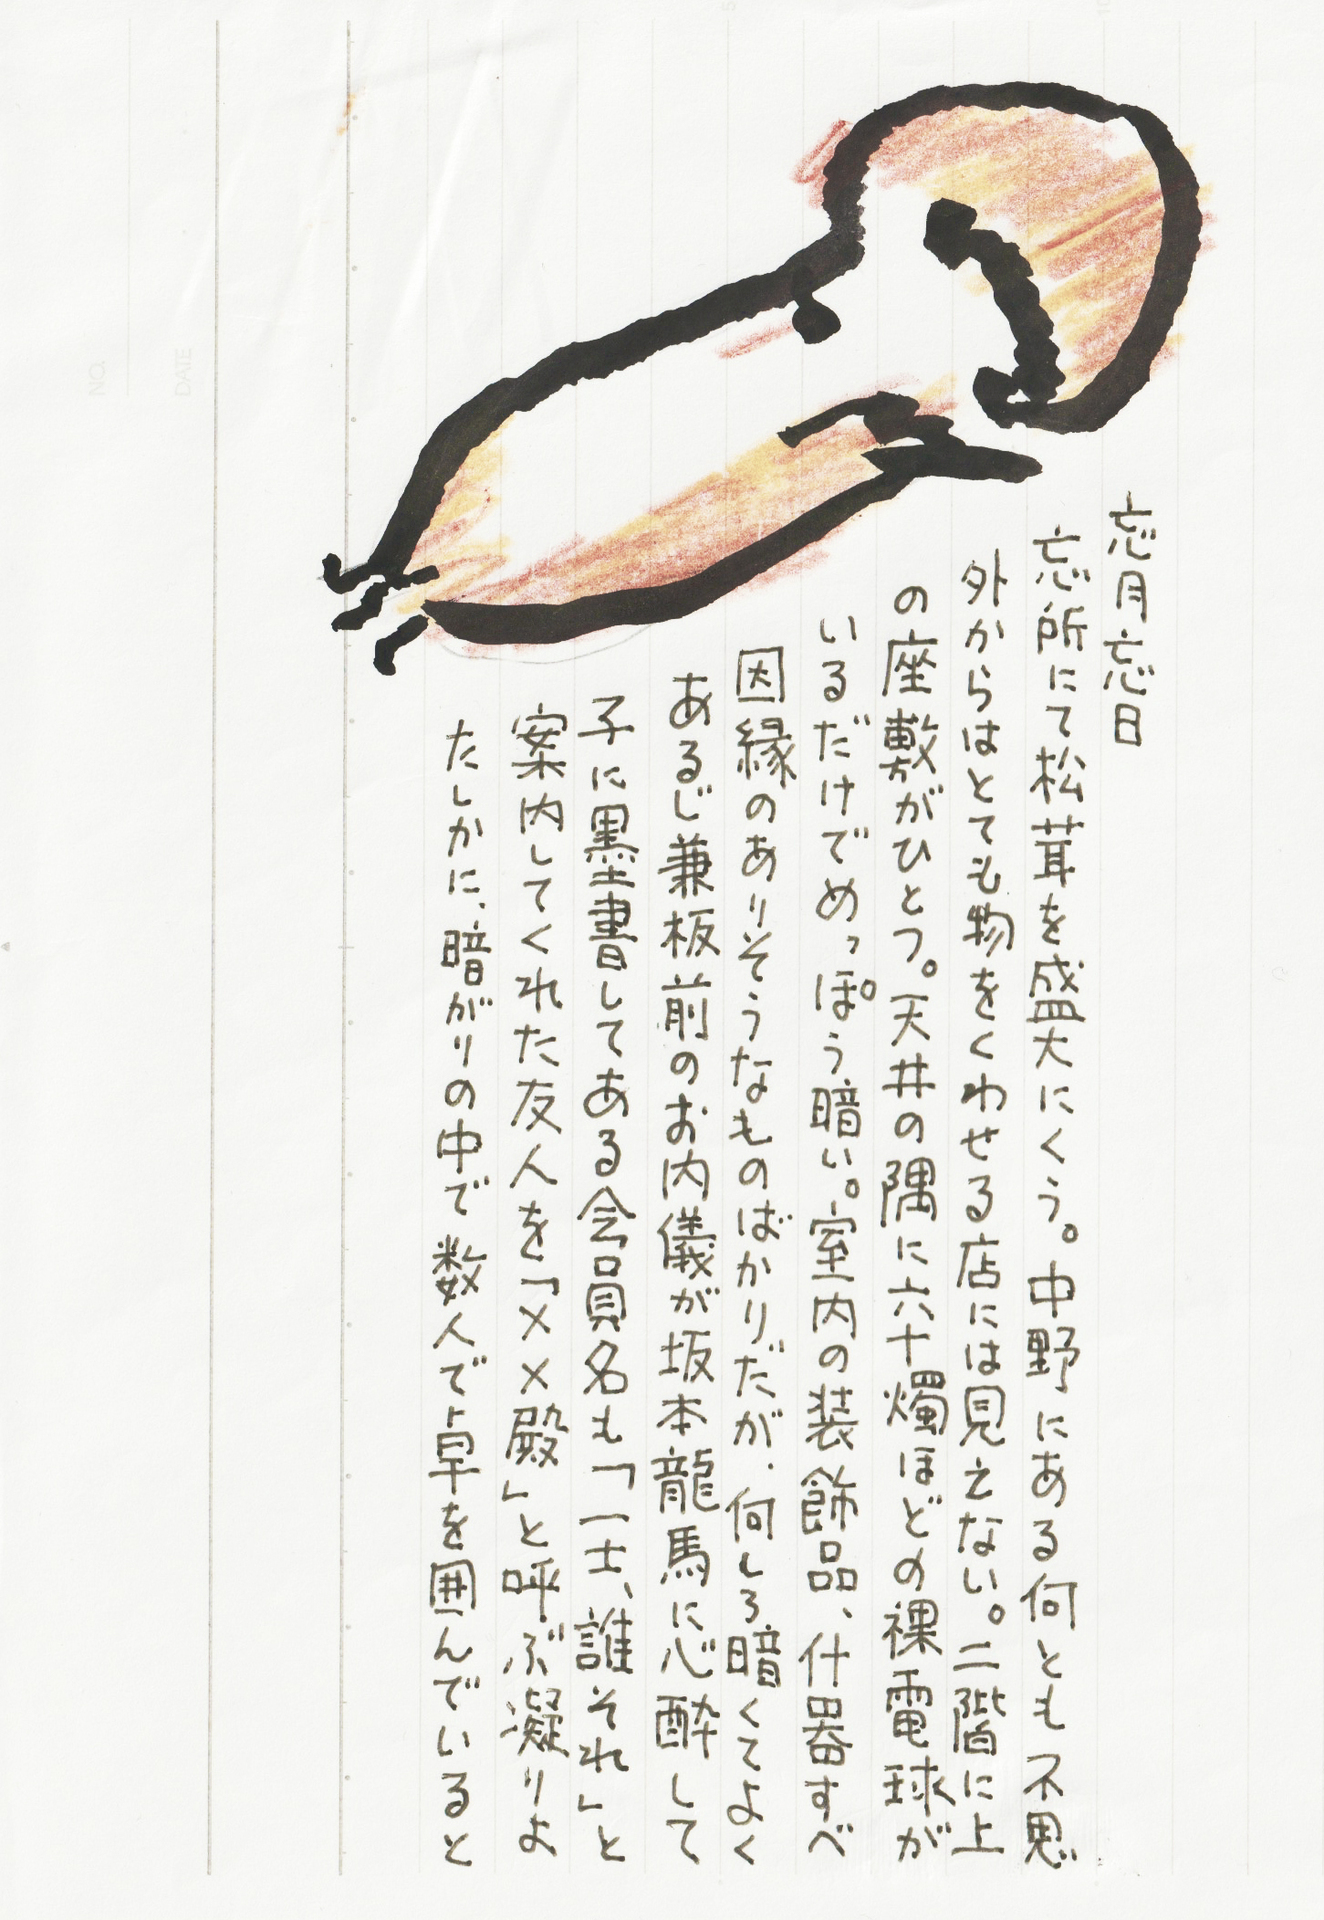 忘月忘日
忘所にて松茸を盛大にくう。中野にある何とも不思
外からはとても物をくわせる店には見えない。二階に上
の座敷がひとつ。天井の隅に六十燭ほどの裸電球が
いるだけでめっぽう暗い。室内の装飾品、什器すべ
因縁のありそうなものばかりだが、何しろ暗くてよく
あるじ兼板前のお内儀が坂本龍馬に心酔して
子に墨書してある会員名も「一士、誰それ」と
案内してくれた友人を「××殿」と呼ぶ凝りよ
たしかに、暗がりの中で数人で卓を囲んでいると
NO.
DATE